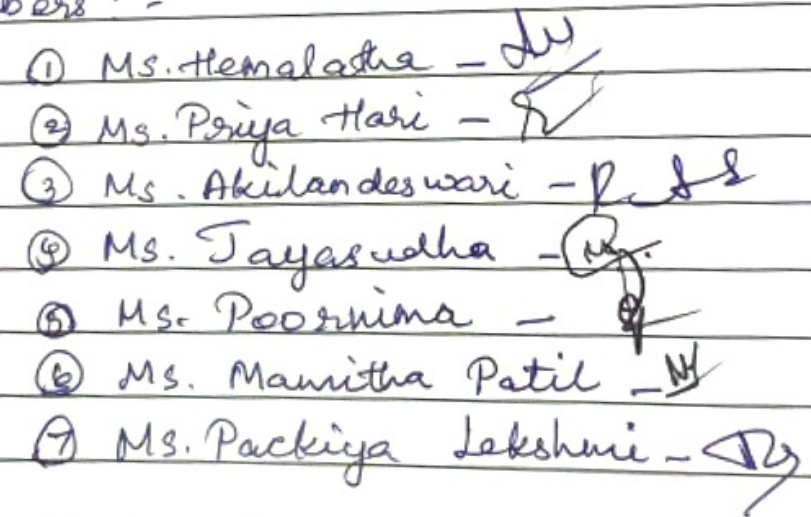 bers :-
① Ms. Hemalatha -
② Ms. Priya Hari -
③ Ms. Akilandeswari -
④ Ms. Jayasudha -
⑤ Ms. Poornima -
⑥ Ms. Mamitha Patil -
⑦ Ms. Packiya Lekshmi -